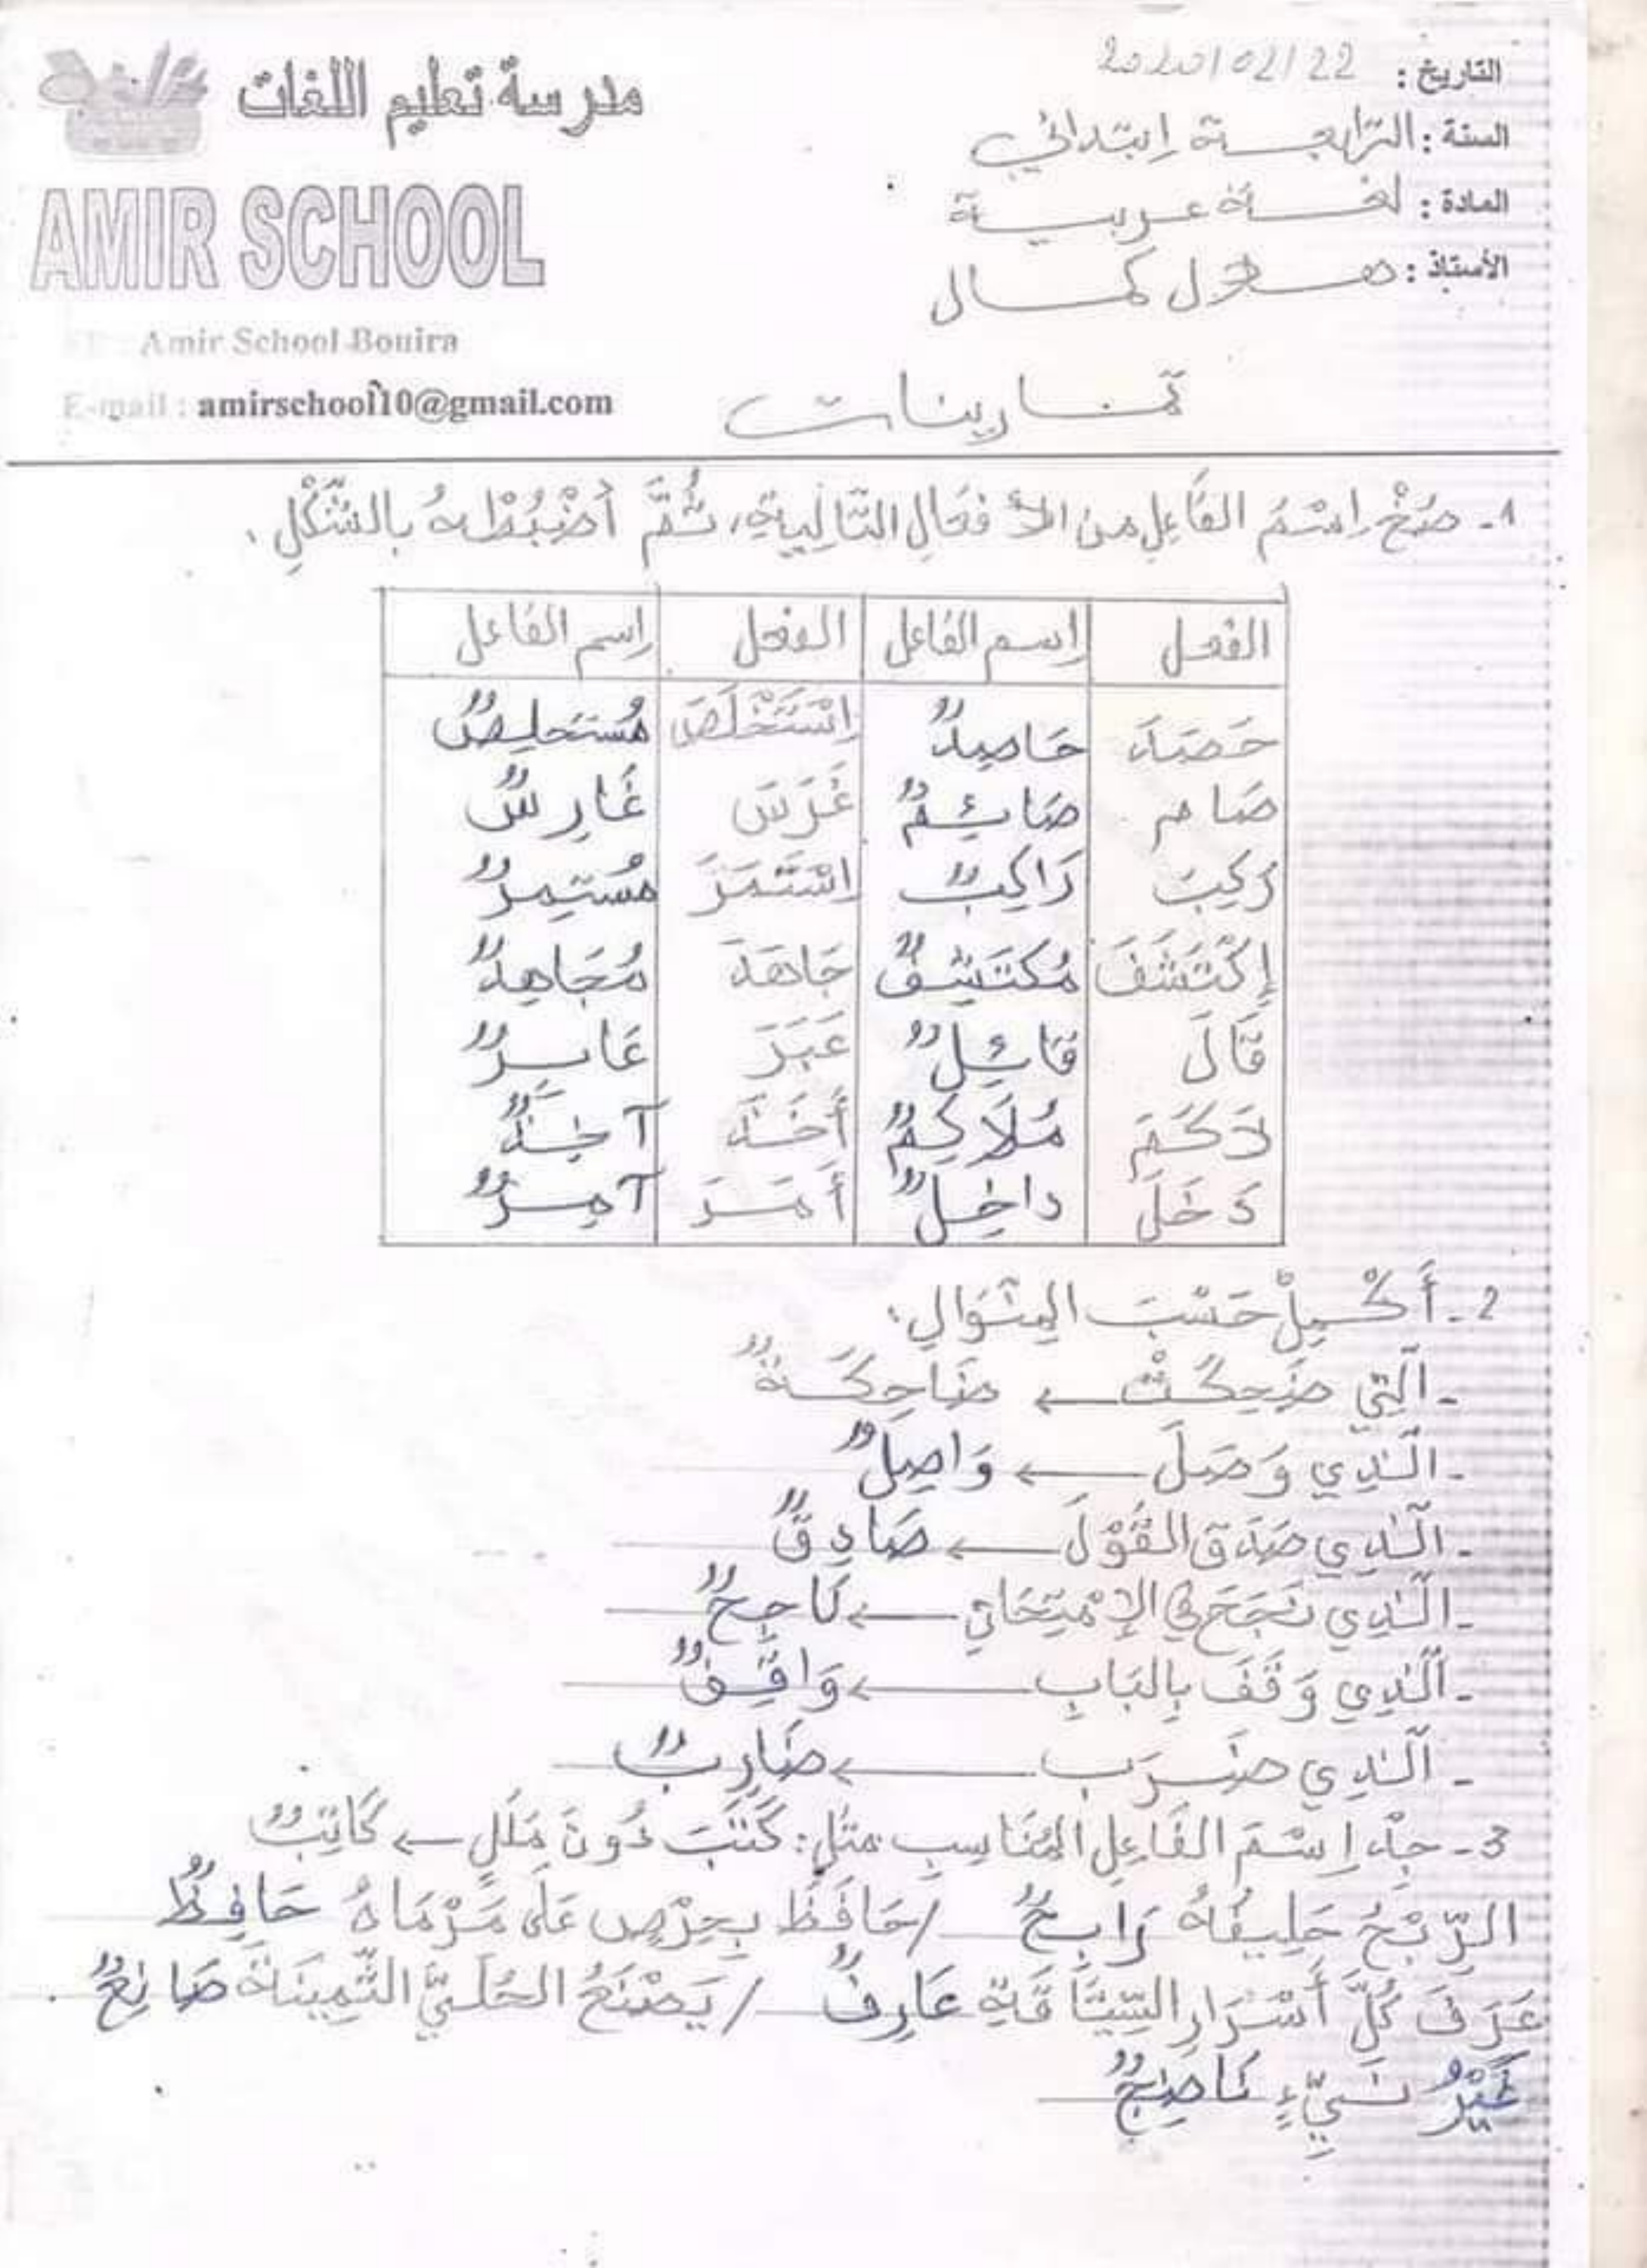 مدرسة تعليم اللغات
AMIR SCHOOL
Amir School Bouira
E-mail : amirschool10@gmail.com
التاريخ : 2020/02/22
السنة : الرّابعة اِبتدائي
المادة : لغة عربية
الأستاذ : هلال كمال
تمارينات
1- صُغْ اِسْمَ الفَاعِلِ من الأفعَالِ التَّالِيةِ، ثُمَّ اُضْبُطْهُ بالشَّكْلِ.
الفعل | اِسم الفَاعل | الفعل | اِسم الفَاعل
حَصَدَ | حَاصِدٌ | اِسْتَخْلَصَ | مُستَخلِصٌ
صَام | صَائِمٌ | غَرَسَ | غَارِسٌ
رَكِبَ | رَاكِبٌ | اِسْتَمَرَّ | مُستَمِرٌّ
اِكْتَشَفَ | مُكتَشِفٌ | جَاهَدَ | مُجَاهِدٌ
قَالَ | قَائِلٌ | عَبَرَ | عَابِرٌ
لَاكَمَ | مُلَاكِمٌ | أَخَذَ | آخِذٌ
دَخَلَ | داخِلٌ | أَمَرَ | آمِرٌ
2- أَكْمِلْ حَسْبَ المِنْوَالِ.
- اَلَّتِي ضَحِكَتْ ← ضَاحِكَةٌ
- الَّذِي وَصَلَ ← وَاصِلٌ
- الَّذِي صَدَقَ القَوْلَ ← صَادِقٌ
- الَّذِي نَجَحَ في الإمْتِحَانِ ← نَاجِحٌ
- اَلَّذِي وَقَفَ بِالبَابِ ← وَاقِفٌ
- اَلَّذِي ضَرَب ← ضَارِبٌ
3- جِدْ اِسْمَ الفَاعِلِ المُنَاسِبِ مثل: كَتَبَ دُونَ مَلَلٍ ← كَاتِبٌ
الرِّبْحُ حَلِيفُهُ رَابِحٌ / حَافَظَ بِحِرْصٍ عَلَى مَرْمَاهُ حَافِظٌ
عَرَفَ كُلَّ أَسْرَارِ السِّيَاقَةِ عَارِفٌ / يَصْنَعُ الحُلَيَّ الثَّمِينَةَ صَانِعٌ
غَيْرُ نَيِّءٍ نَاضِجٌ